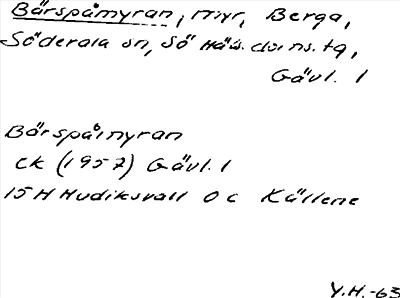 Bärspåmyran, myr, Berga,
Söderala sn, Sö Häls. doms. tg,
Gävl. l
Bärspåmyran
ek (1957) Gävl. l
15 H Hudiksvall 0 c Källene
Y.H.-63